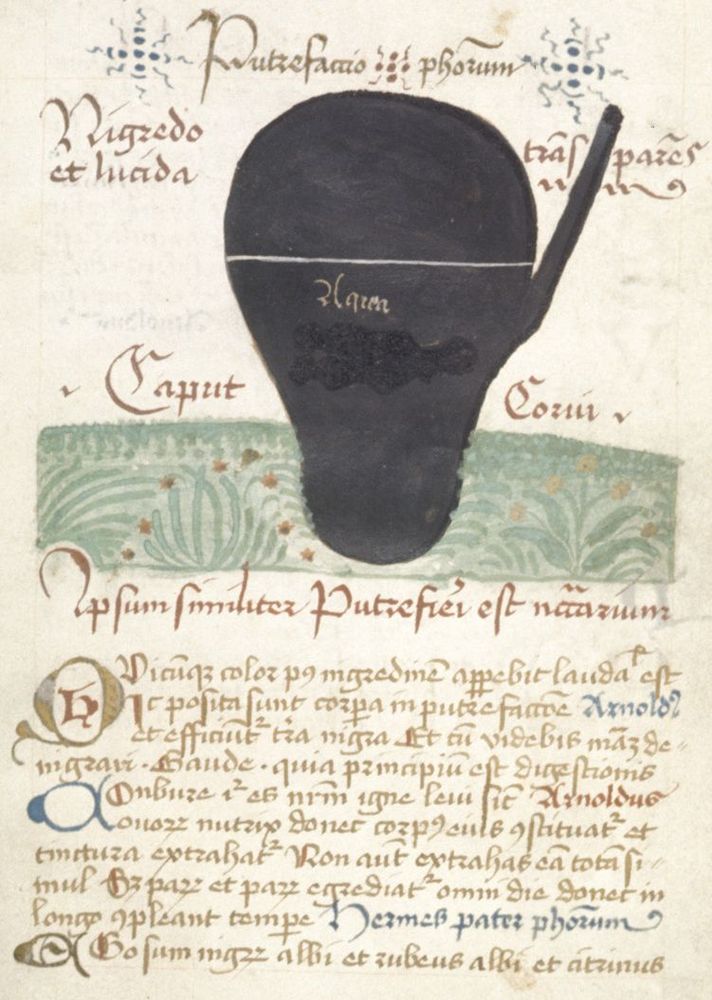 Putrefaccio phorum
Nigredo et lucida
trãs parẽs
Aqua
Caput Corui
Ipsum similiter Putrefieri est nccãrium
Quicũqz color p9 nigredinẽ apparebit laudaʳ est
Hic posita sunt corpa in putrefactõe Arnold9
et efficiũtʳ tr̃a nigra Et cũ videbis mãz de-
nigrari · Gaude · quia principiũ est digestionis
Conbure r̃es nr̃m igne leui sic̃ Arnoldus
nutrix donec corp9 eius 9stituatʳ et
tinctura extrahatʳ Non aũt extrahas eã totã si-
mul Sz parz et parz egrediatʳ omni die donec in
longo 9pleant tempe Hermes pater phorum
Ego sum nigrz albi et rubeus albi et citrinus